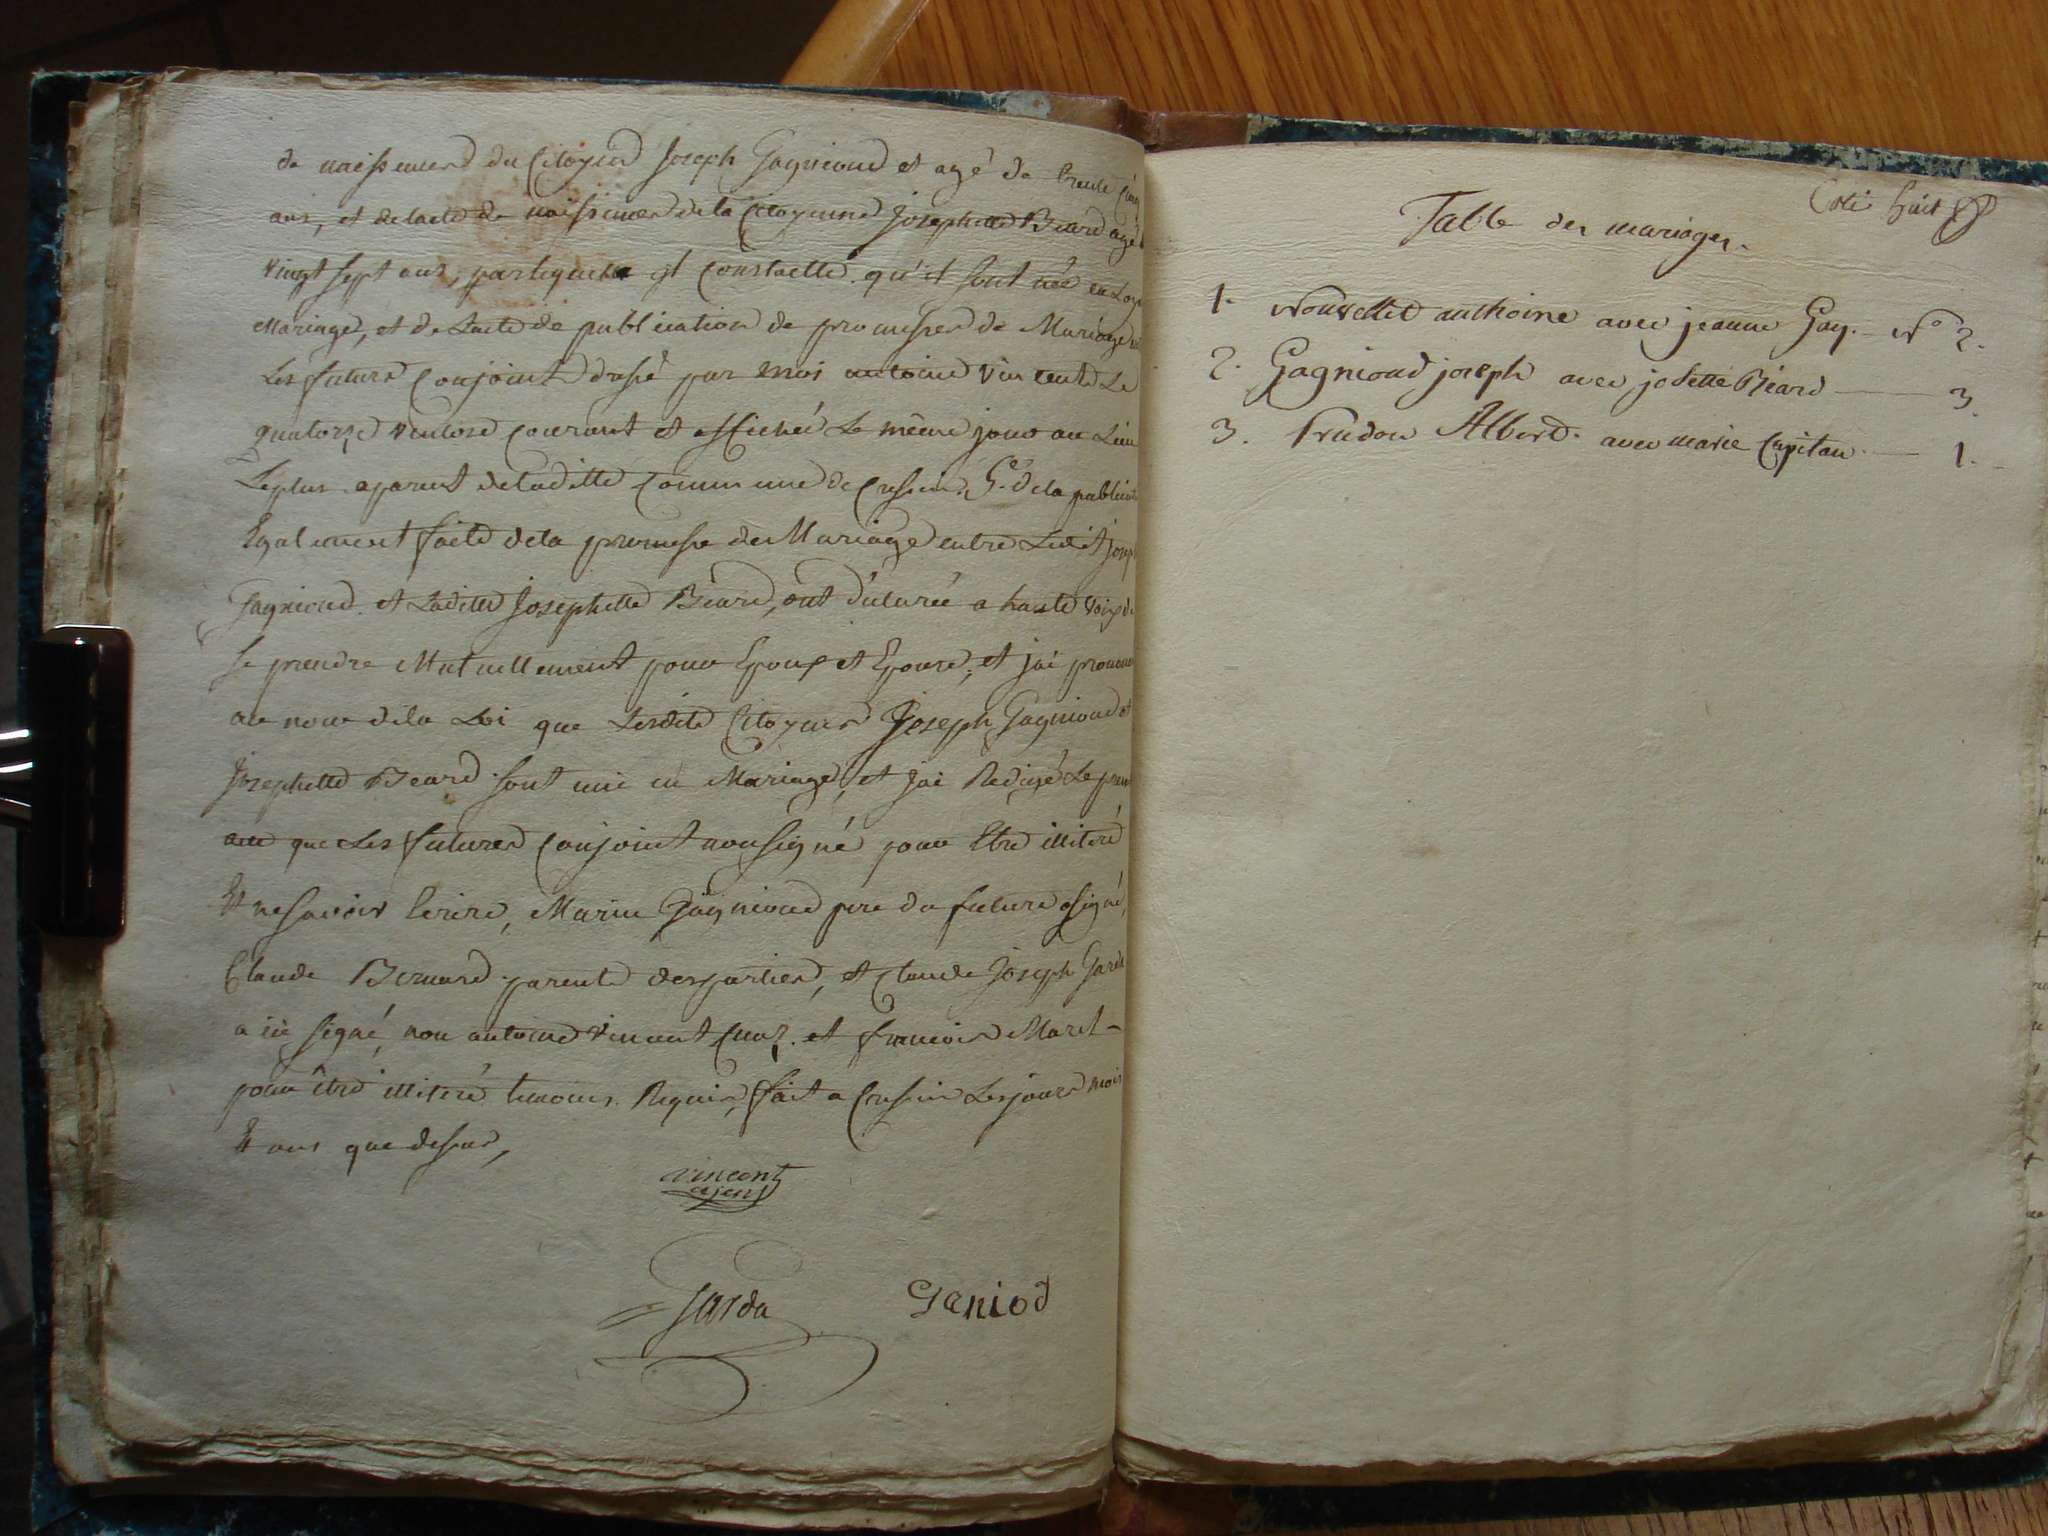 de naissement du Citoyen Joseph Gagnioud et agé de trente cinq
ans, et de lacte de naissement de la Citoyenne Josephette Béard agé
vingt sept ans, par lequelle il constatte qu'il sont née en Loy
Mariage, et de Lacte de publication de promesses de Mariage
Les futurs Conjoint dressé par moi antoine Vincent Le
quatorze ventose courant et affiché Le même jour au Lieu
Leplus aparent de laditte Commune de de la publication
Egalement faite de la promesse de Mariage entre Ledit joseph
Gagnioud et Laditte Josephette Béard, ont déclarée a haute voix de
se prendre Mutuellement pour Epoux et Epouse, et jai prononcé
au nom de la Loi que Lesdits Citoyens Joseph Gagnioud et
Josephette Beard sont unie en Mariage, et jai Redigé Le present
acte que Les futures Conjoint nonsigné pour Etre illiteré
Et ne savoir Ecrire, Marin Gagnioud pere du future a signé,
Claude Bernard parents desparties, et Claude Joseph Garda
a ici signé, non antoine vincent et francois Maret
pour être illiteré temoins Requis, fait a Les jours mois
Et ans que dessus,
vincent
ajent
Garda Ganiod
Coté huit
Table des mariages.
1. Nouvellet anthoine avec jeanne Gay. N° 2.
2. Gagnioud joseph avec josette Béard 3.
3. Prudon Albert. avec marie Capitan 1.